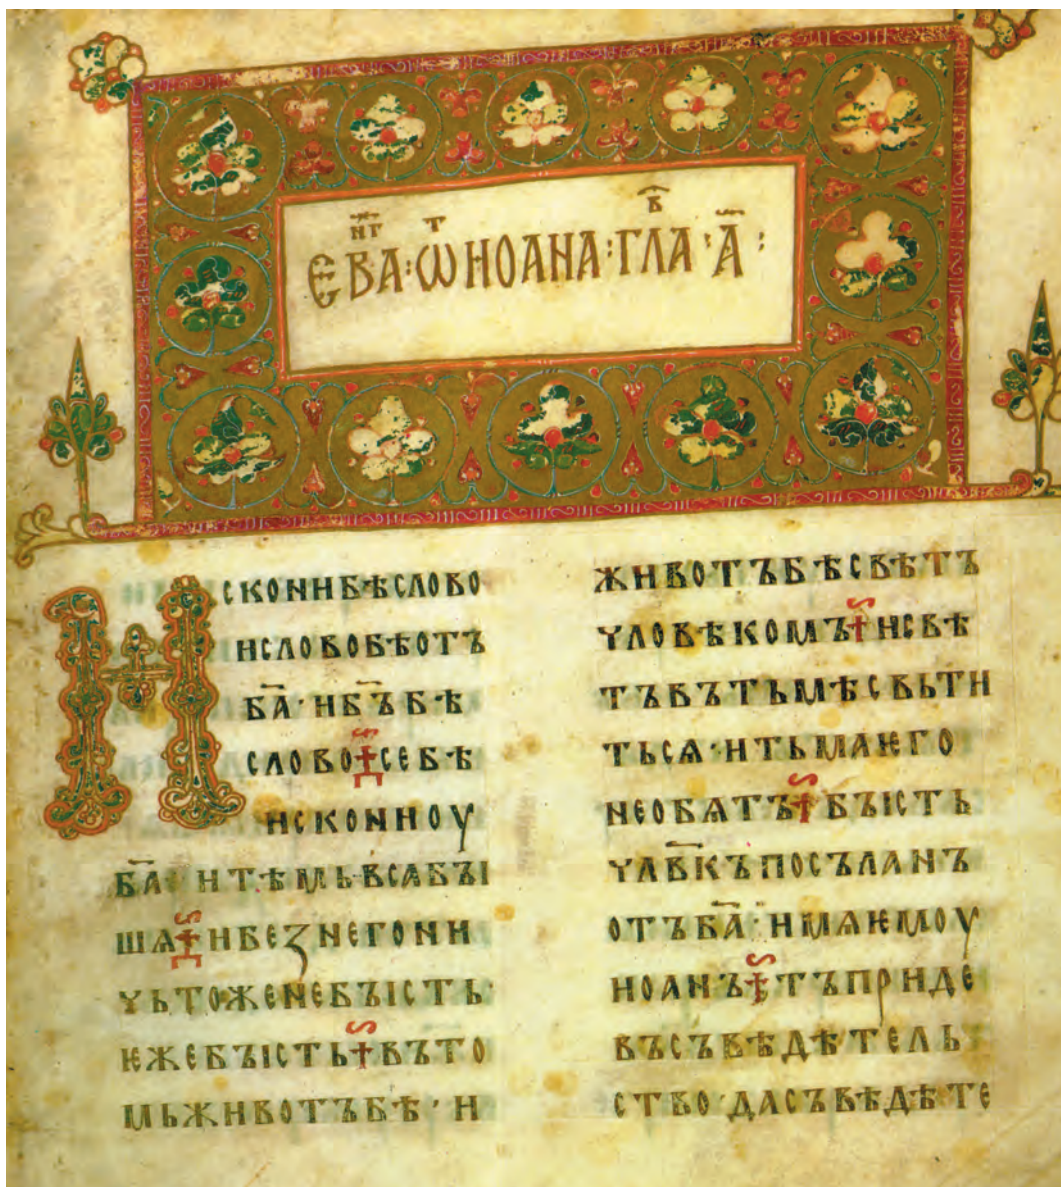 ЕВА҃НГ꙼:Ѡт ИОАНА·ГЛАв·А҃:
ИСКОНИБѢСЛОВО
ИСЛОВОБѢОТЪ
БА҃·ИБЪ҃БѢ
СЛОВО СЕБѢ
ИСКОНИОУ
БА҃·ИТѢМЬВСꙖБꙐ
ШѦ ИБЕЗНЕГОНИ
ЧЬТОЖЕНЕБꙐСТЬ·
ѤЖЕБꙐСТЬ ВЪТО
МЬЖИВОТЪБѢ·И
ЖИВОТЪБѢСВѢТЪ
ЧЛОВѢКОМЪ ИСВѢ
ТЪВЪТЬМѢСВЬТИ
ТЬСѦ·ИТЬМАѤГО
НЕОБѦТЪ БꙐСТЬ
ЧЛВ҃КЪПОСЪЛАНЪ
ОТЪБА҃·ИМѦѤМОУ
ИОАНЪ ТЪПРИДЕ
ВЪСЪВѢДѢТЕЛЬ
СТВО·ДАСЪВѢДѢТЕ